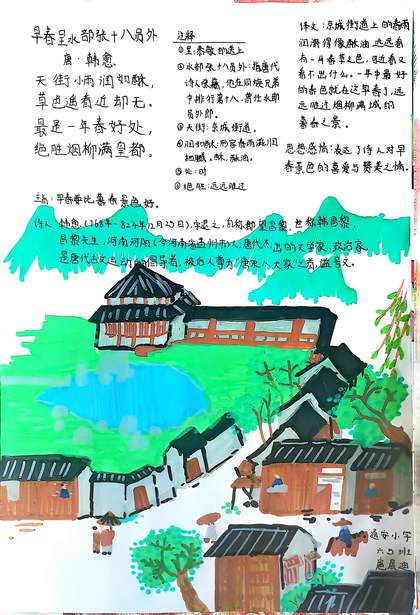 早春呈水部张十八员外
唐·韩愈
天街小雨润如酥,
草色遥看近却无。
最是一年春好处,
绝胜烟柳满皇都。
注释
①呈:恭敬的送上
②水部张十八员外:指唐代
诗人张籍,他在同族兄弟
中排行第十八,曾任水部
员外郎。
③天街:京城街道。
④润如酥:形容春雨滋润
细腻。酥,酥油。
⑤处:时
⑥绝胜:远远胜过
译文:京城街道上的春雨
润滑得像酥油,远远看
有一片春草之色,可近看又
看不出什么。一年中最好
的春色就在这早春了,远
远胜过烟柳满城的
暮春之景。
思想感情:表达了诗人对早
春景色的喜爱与赞美之情。
主旨:早春要比暮春景色好。
诗人 韩愈(768年-824年12月25日),字退之,自称郡望昌黎,世称韩昌黎、
昌黎先生,河南河阳(今河南省孟州市)人,唐代杰出的文学家、政治家,
是唐代古文运动的倡导者,被后人尊为“唐宋八大家”之首,谥号文。
安小学
六5班